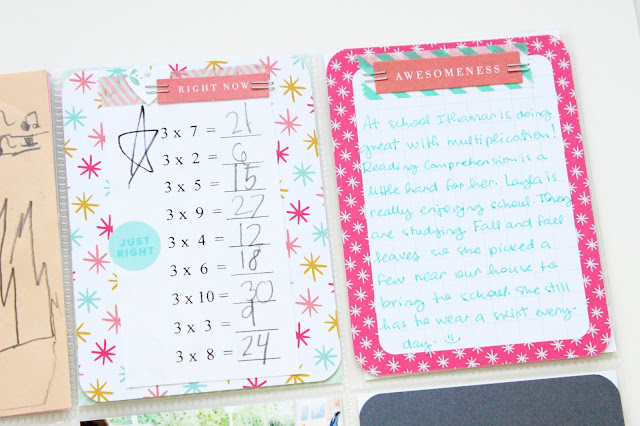 RIGHT NOW
3 x 7 = 21
3 x 2 = 6
3 x 5 = 15
3 x 9 = 27
3 x 4 = 12
3 x 6 = 18
3 x 10 = 30
3 x 3 = 9
3 x 8 = 24
JUST
RIGHT
AWESOMENESS
At school Ithamar is doing
great with multiplication!
Reading Comprehension is a
little hard for her. Layla is
really enjoying school. They
are studying Fall and fall
leaves so she picked a
few near our house to
bring to school. She still
has to wear a skirt every-
day. :)